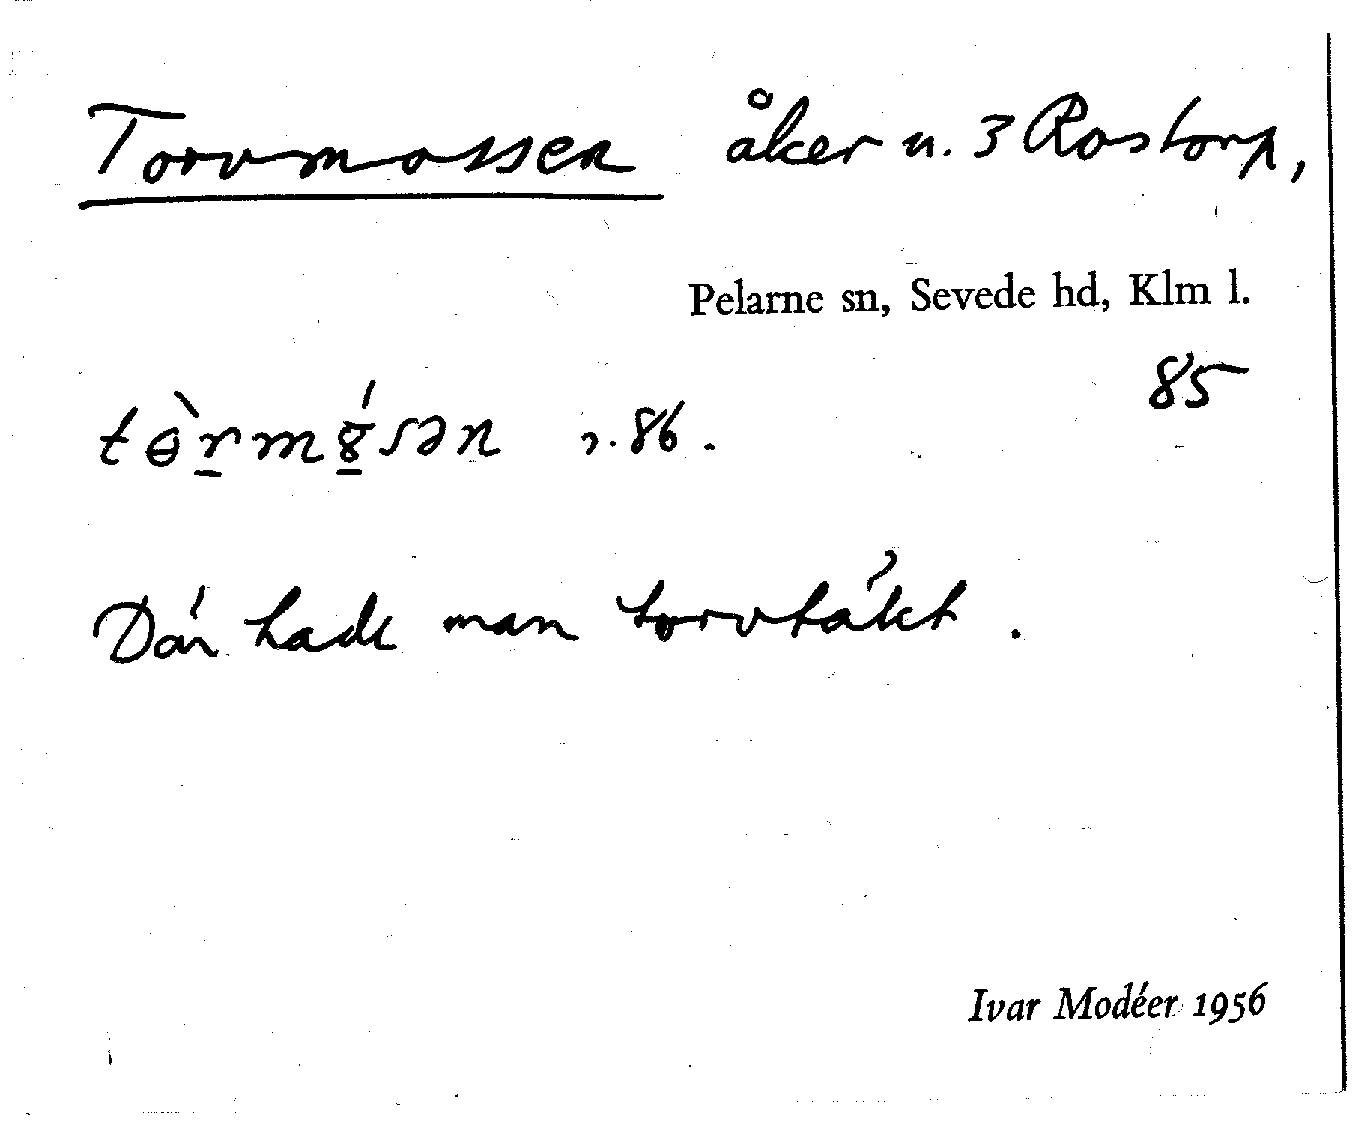 Torvmossen åker u. 3 Rostorp,
Pelarne sn, Sevede hd, Klm l.
85
tɵ̀r̲mɣ̲́sən r. 86.
Där hade man torvtäkt.
Ivar Modéer 1956